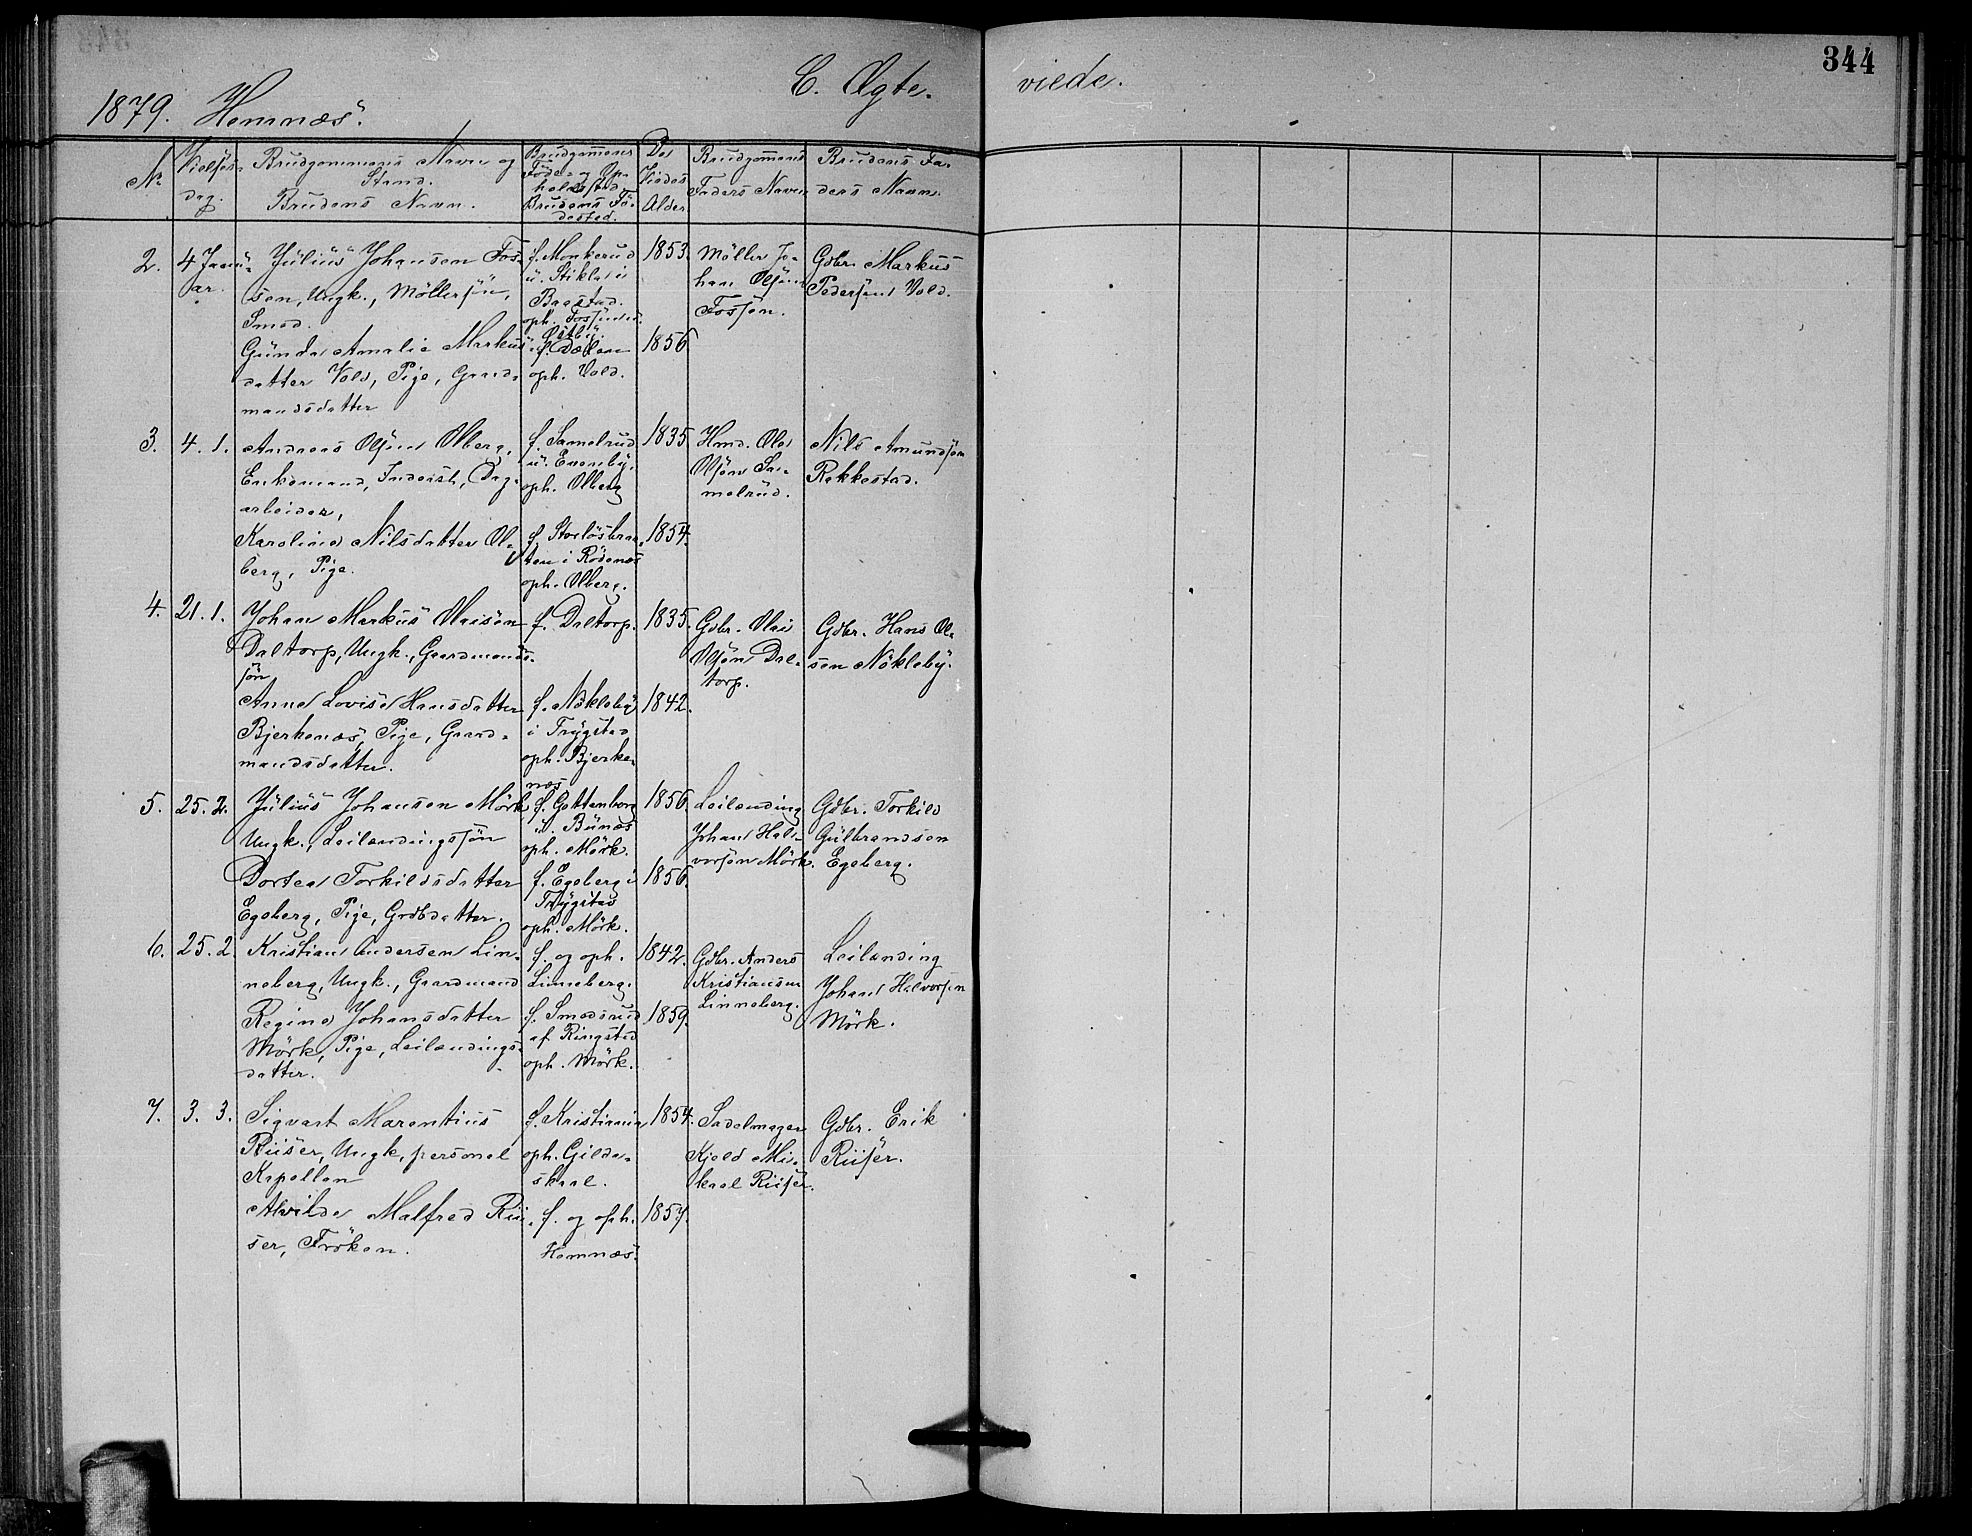 344
C. Ægte- viede.
1879. Hemnæs.
No
Vielses-
dag.
Brudgommens Navn og
Stand.
Brudens Navn.
Brudgommens
Føde- og Op-
holdssted.
Brudens Fø-
dested.
De
Viedes
Alder
Brudgommens
Faders Navn
Brudens Fa-
ders Navn.
2.
4 Janu-
ar.
Julius Johansen Fos-
sen, Ungk., Möllersön,
Smed.
Gunda Amalie Markus-
datter Vold, Pige, Gaard-
mandsdatter
f. Monkerud
u. Stikla i
Baastad.
oph. Fossen u.
Östby.
f. Dælen
oph. Vold.
1853.
1856
Möller Jo-
han Olsen
Fossen.
Gdbr. Markus
Pedersen Vold.
3.
4. 1.
Andreas Olsen Olberg,
Enkemand, Inderst, Dag-
arbeider,
Karoline Nilsdatter Ol-
berg, Pige.
f. Samelrud
u. Evenby.
oph. Olberg
f. Storlösbraa-
ten i Rödenæs
oph. Olberg.
1835
1854.
Hmd. Ole
Olsen Sa-
melrud.
Nils Amundsen
Rakkestad.
4.
21. 1.
Johan Markus Olaisen
Daltorp, Ungk., Gaardmands-
søn
Anne Lovise Hansdatter
Bjerkenæs, Pige, Gaard-
mandsdatter.
f. Daltorp.
f. Nökleby
i Trygstad
oph. Bjerke-
næs
1835.
1842.
Gdbr. Olai
Olsen Dal-
torp.
Gdbr. Hans Ol-
sen Nökleby.
5.
25. 2.
Julius Johansen Mörk
Ungk., Leilændingssøn
Dortea Torkildsdatter
Egeberg, Pige, Grdbdatter.
f. Gottenborg
u. Bunæs
oph. Mörk.
f. Egeberg i
Trygstad
oph. Mörk.
1856
1856.
Leilænding
Johan Hal-
vorsen Mörk.
Gdbr. Torkild
Gulbrandsen
Egeberg.
6.
25. 2
Kristian Andersen Lin-
neberg, Ungk., Gaardmand
Regine Johansdatter
Mörk, Pige, Leilændings-
datter.
f. og oph.
Linneberg.
f. Smedsrud
af Ringstad
oph. Mörk.
1842.
1859.
Gdbr. Anders
Kristiansen
Linneberg.
Leilænding
Johan Halvorsen
Mörk.
7.
3. 3.
Sigvart Marentius
Riiser, Ungk, personel
Kapellan
Alvilde Malfred Rii-
ser, Fröken.
f. Kristiania
oph. Gilde-
skaal.
f. og oph.
Hemnæs.
1854.
1857.
Sadelmager
Kjeld Mi-
kael Riiser.
Gdbr. Erik
Riiser.